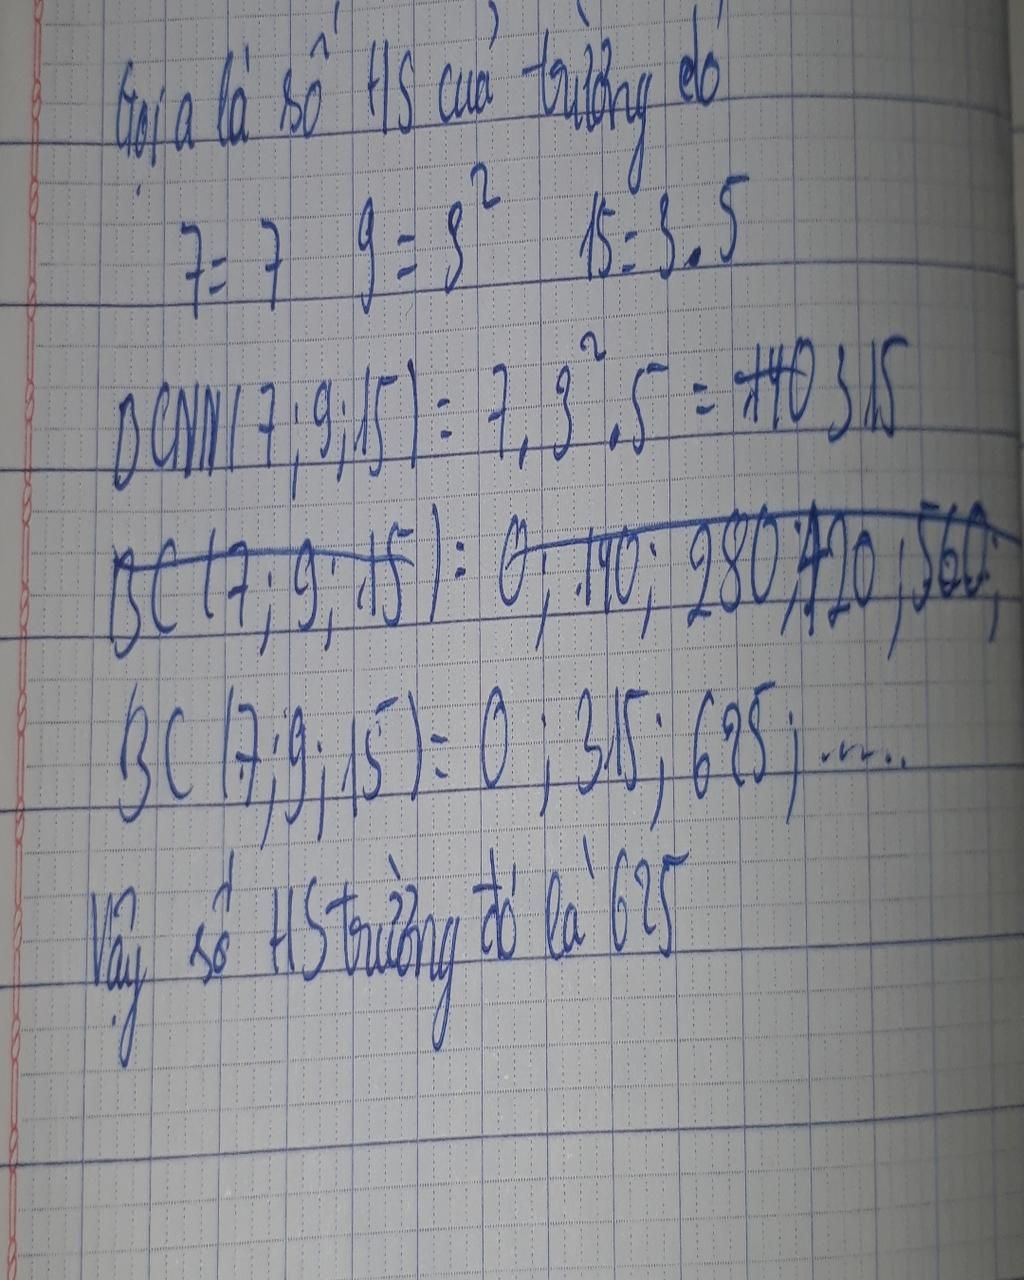 Gọi a là số HS của trường đó
7 = 7 9 = 3² 15 = 3.5
BCNN(7;9;15) = 7.3².5 = 140 315
BC(7;9;15) = 0; 140; 280; 420; 560;
BC(7;9;15) = 0; 315; 625; .....
Vậy số HS trường đó là 625